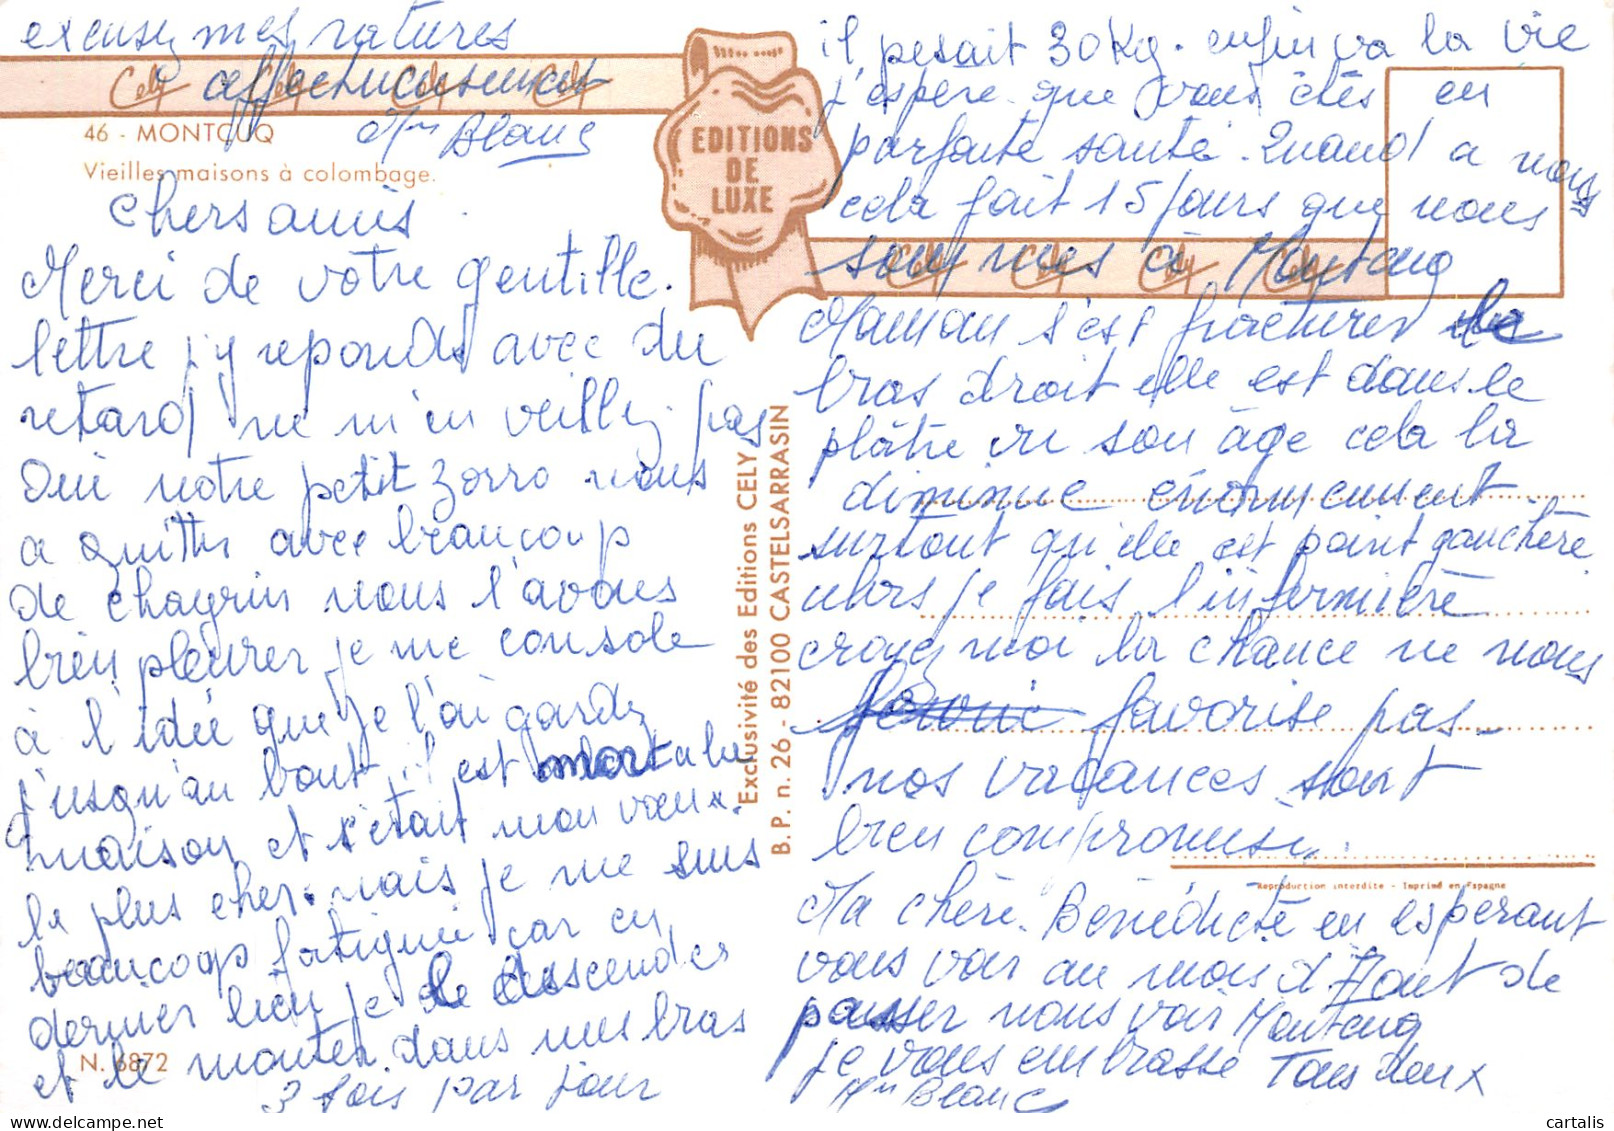 excusez mes ratures
affectueusement
Mme Blanc
46 - MONTCUQ
Vieilles maisons à colombage.
EDITIONS
DE
LUXE
Chers amis
Merci de votre gentille.
lettre j'y reponds avec du
retard ne m'en veillez pas
Oui notre petit zorro nous
a quitter avec beaucoup
de chagrin nous l'avons
bien pleurer je me console
à l'idée que je l'ai gardez
jusqu'au bout, il est mort a la
maison et s'était mon voeux.
le plus cher. mais je me suis
beaucoup fatiguée car en
dernier lieu je le descender
et le montez dans mes bras
3 fois par jour
N. 6872
Exclusivité des Editions CELY
B.P. n. 26 - 82100 CASTELSARRASIN
il pesait 30 Kg. enfin va la vie
j'espère que vous êtes en
parfaite santé. Quand a nous
cela fait 15 jours que nous
sommes à Montcuq
Maman s'est fracturer le
bras droit elle est dans le
plâtre vu son âge cela la
diminue énormement
surtout qu'elle est point gauchère
alors je fais l'infermière
croyez moi la chance ne nous
favorise pas_
nos vacances sont
bien compromise.
Reproduction interdite - Imprimé en Espagne
Ma chère Bénédicte en esperant
vous voir au mois d'Aout de
passer nous voir Montcuq
je vous embrasse Tous deux
Mme Blanc
cartalis